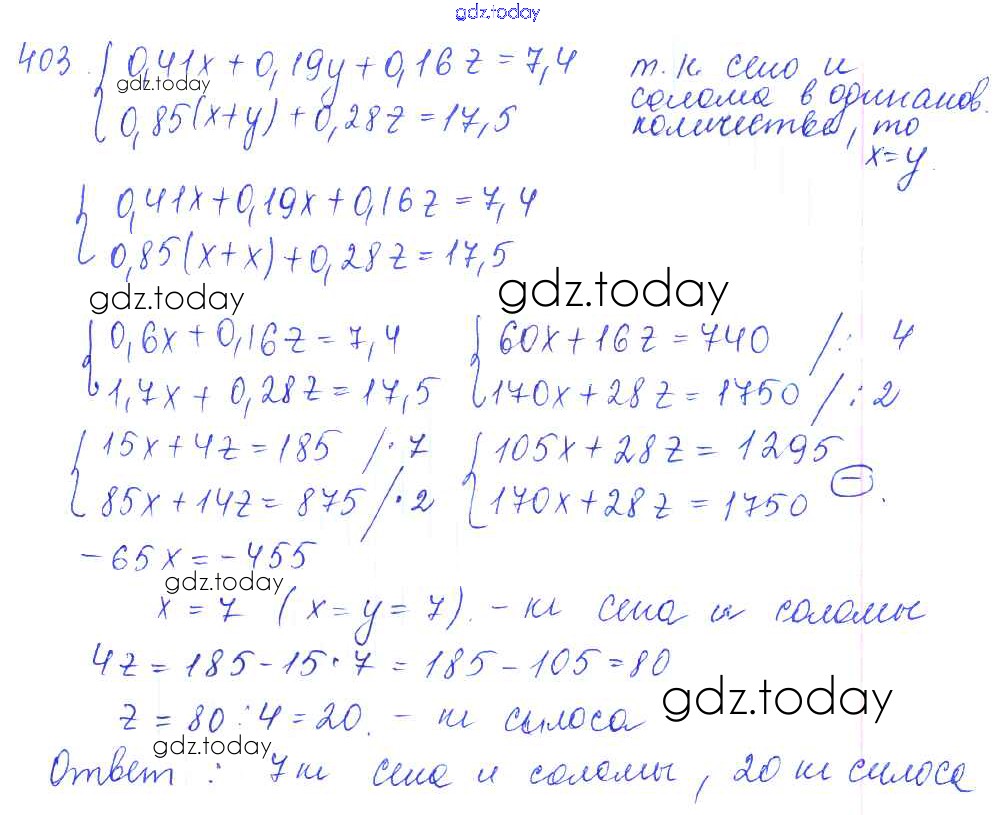 gdz.today
403. { 0,41x + 0,19y + 0,16z = 7,4
0,85(x+y) + 0,28z = 17,5
gdz.today
т.к сено и
солома в одинаков.
количестве, то
x=y.
{ 0,41x+0,19x+0,16z = 7,4
0,85(x+x)+0,28z = 17,5
gdz.today
gdz.today
{ 0,6x + 0,16z = 7,4
1,7x + 0,28z = 17,5
{ 60x + 16z = 740 /: 4
170x + 28z = 1750 /: 2
{ 15x + 4z = 185 /· 7
85x + 14z = 875 /· 2
{ 105x + 28z = 1295
170x + 28z = 1750 ⊖.
-65x = -455
gdz.today
x = 7 (x = y = 7). - кг сена и соломы
4z = 185 - 15·7 = 185 - 105 = 80
gdz.today
z = 80 : 4 = 20. - кг силоса
gdz.today
Ответ : 7 кг сена и соломы, 20 кг силоса